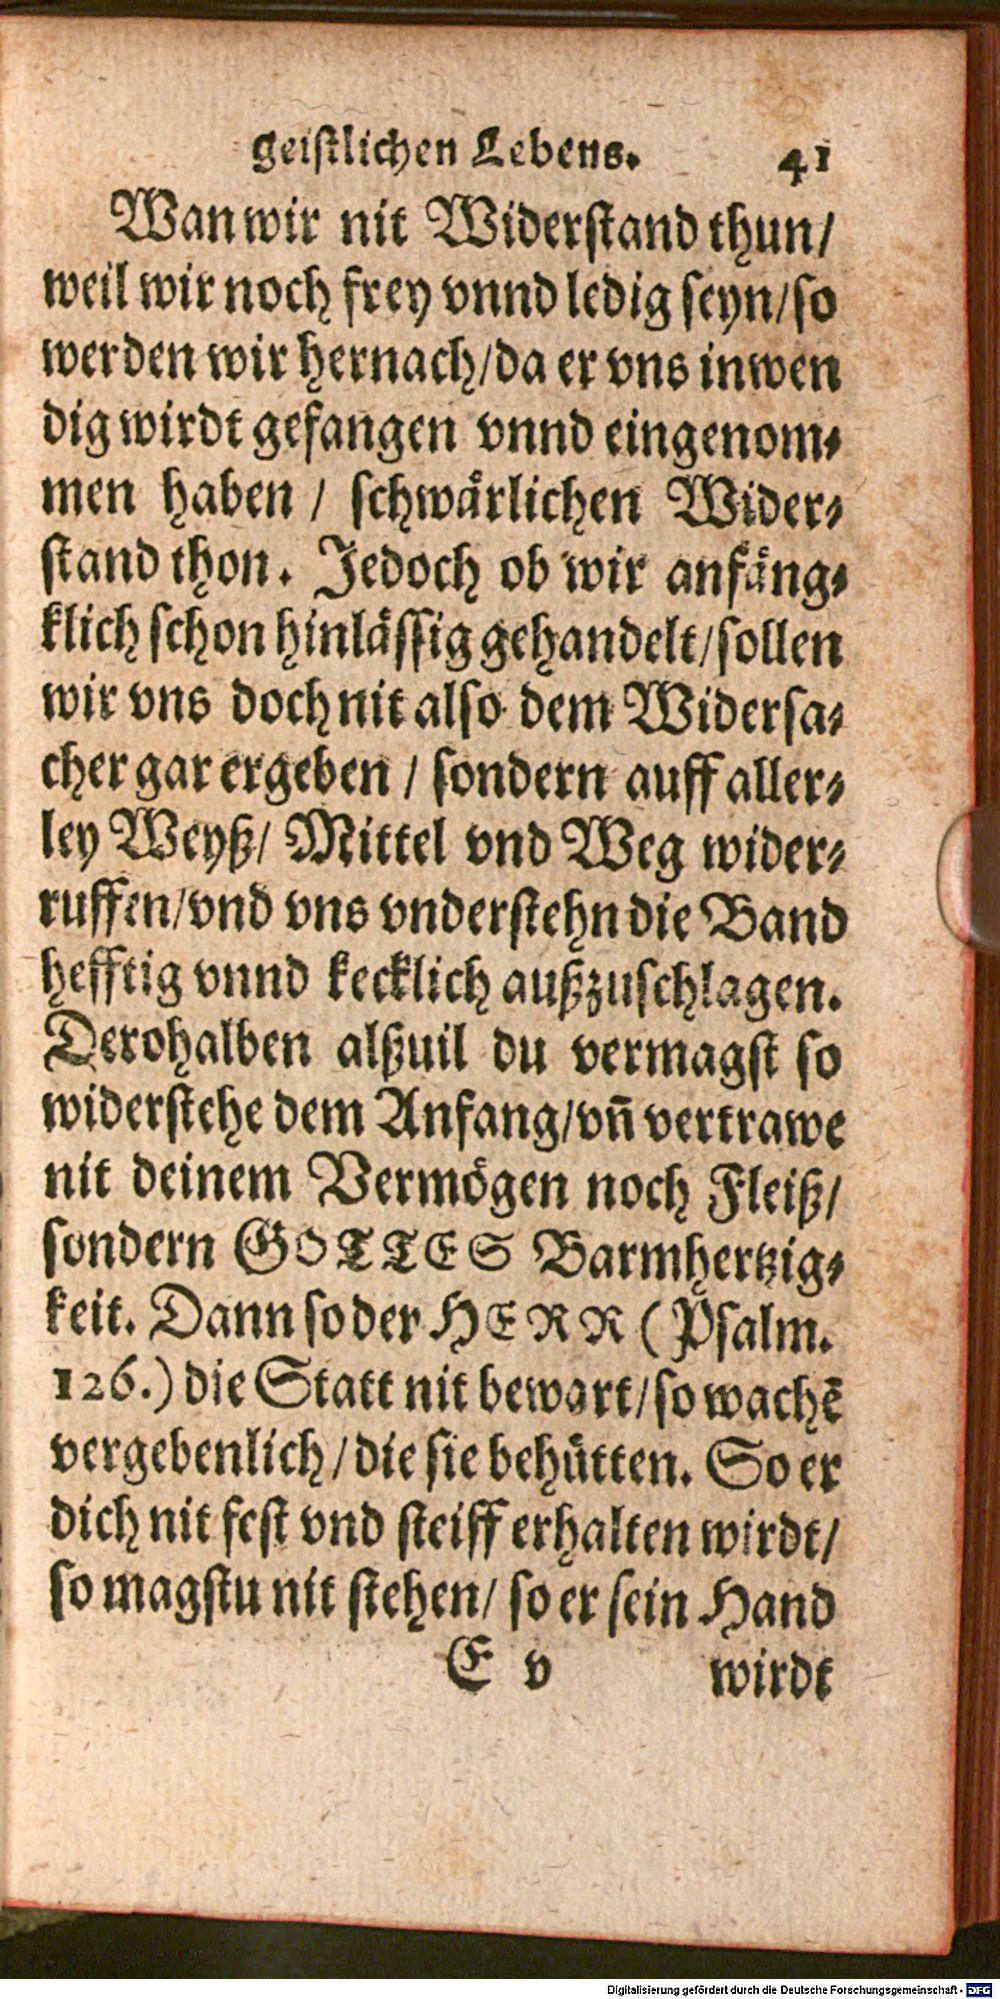 geistlichen Lebens. 41
Wan wir nit Widerstand thun/
weil wir noch frey vnnd ledig seyn/so
werden wir hernach/da er vns inwen
dig wirdt gefangen vnnd eingenom-
men haben / schwärlichen Wider-
stand thon. Jedoch ob wir anfäng-
klich schon hinlässig gehandelt/sollen
wir vns doch nit also dem Widersa-
cher gar ergeben / sondern auff aller-
ley Weyß/ Mittel vnd Weg wider-
ruffen/vnd vns vnderstehn die Band
hefftig vnnd kecklich außzuschlagen.
Derohalben alßuil du vermagst so
widerstehe dem Anfang/vn̄ vertrawe
nit deinem Vermögen noch Fleiß/
sondern GOTTES Barmhertzig-
keit. Dann so der HERR (Psalm.
126.) die Statt nit bewart/so wachē
vergebenlich/die sie behütten. So er
dich nit fest vnd steiff erhalten wirdt/
so magstu nit stehen/ so er sein Hand
E v wirdt
Digitalisierung gefördert durch die Deutsche Forschungsgemeinschaft - DFG